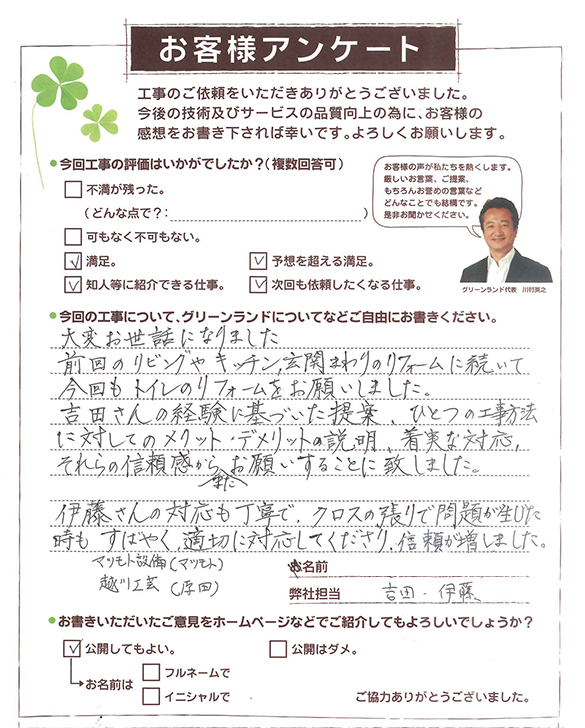 お客様アンケート
工事のご依頼をいただきありがとうございました。
今後の技術及びサービスの品質向上の為に、お客様の
感想をお書き下されば幸いです。よろしくお願いします。
今回工事の評価はいかがでしたか?(複数回答可)
不満が残った。
(どんな点で?: )
可もなく不可もない。
満足。
予想を超える満足。
知人等に紹介できる仕事。
次回も依頼したくなる仕事。
お客様の声が私たちを熱くします。
厳しいお言葉、ご提案、
もちろんお誉めの言葉など
どんなことでも結構です。
是非お聞かせください。
グリーンランド代表 川村英之
今回の工事について、グリーンランドについてなどご自由にお書きください。
大変お世話になりました
前回のリビングやキッチン,玄関まわりのリフォームに続いて
今回もトイレのリフォームをお願いしました。
吉田さんの経験に基づいた提案、ひとつの工事方法
に対してのメリット・デメリットの説明、着実な対応,
それらの信頼感からまたお願いすることに致しました。
伊藤さんの対応も丁寧で,クロスの張りで問題が生じた
時もすばやく,適切に対応してくださり,信頼が増しました。
マツモト設備(マツモト)
越川工芸(原田)
お名前
弊社担当 吉田・伊藤
お書きいただいたご意見をホームページなどでご紹介してもよろしいでしょうか?
公開してもよい。
公開はダメ。
お名前は
フルネームで
イニシャルで
ご協力ありがとうございました。